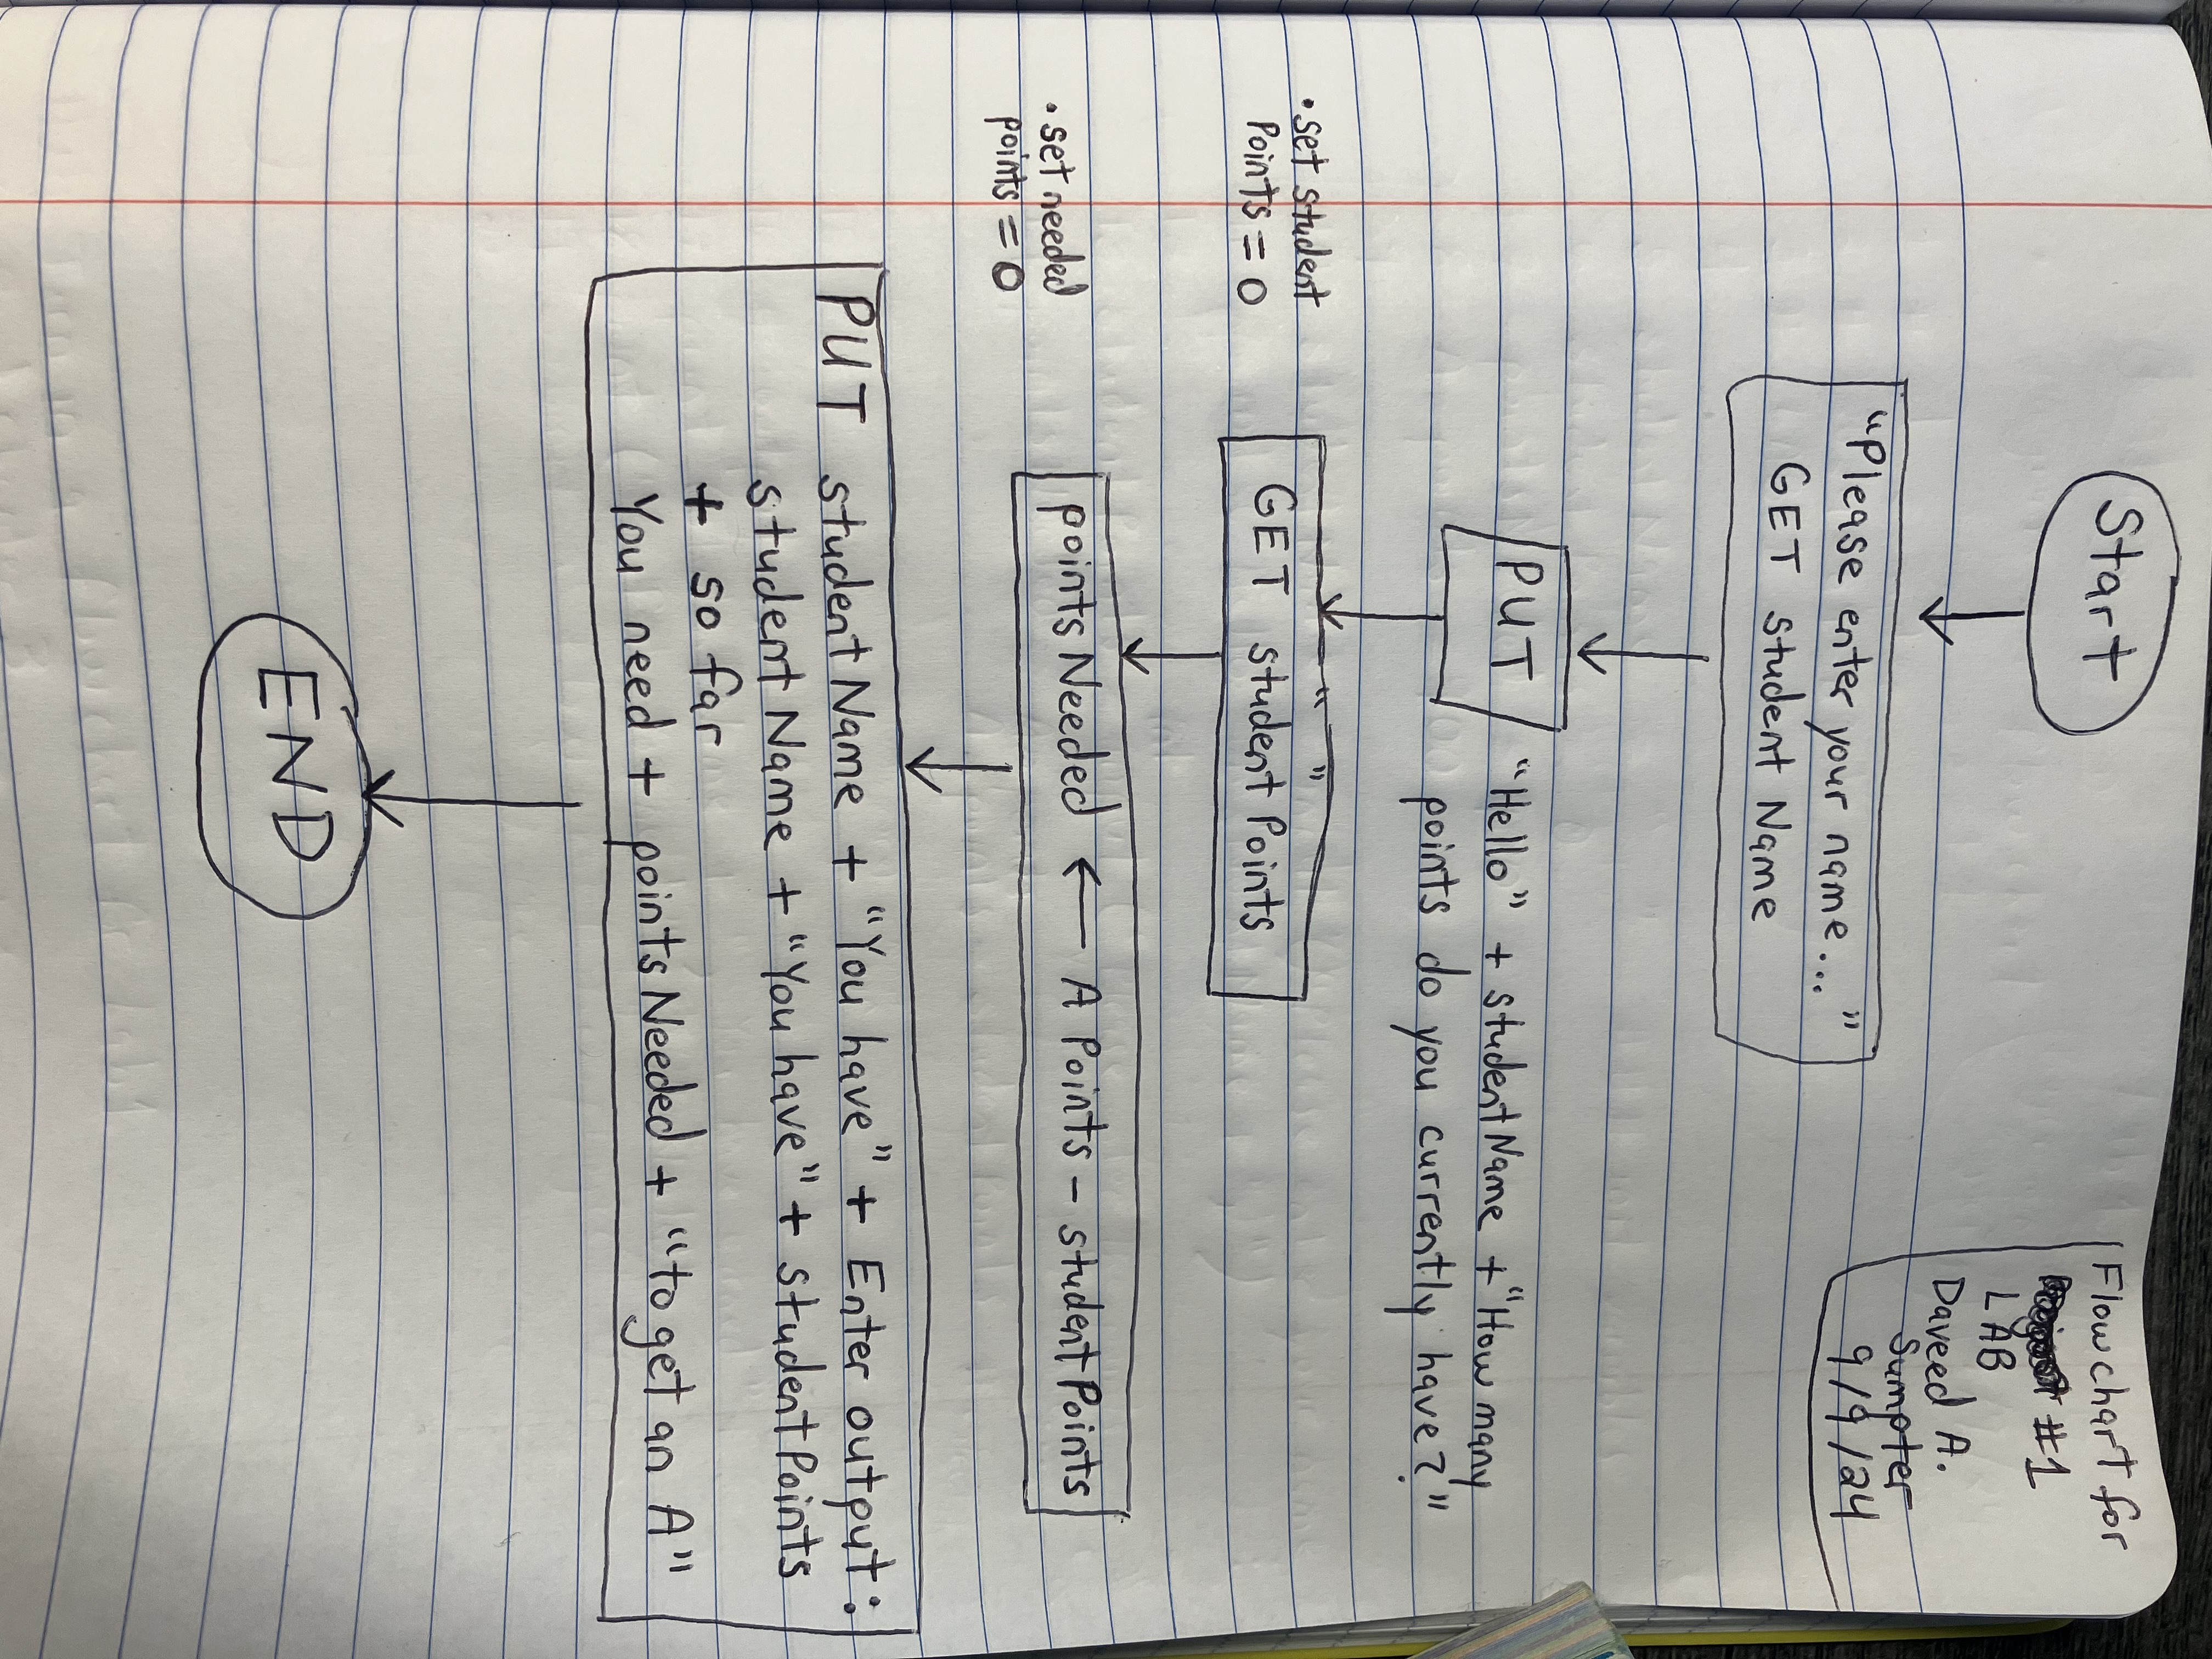 Flowchart for
#1
LAB
Daveed A.
Sumpter
9/9/24
Start
"Please enter your name..."
GET student Name
PUT "Hello" + studentName + "How many
points do you currently have?"
" "
• set student
Points = 0
GET studentPoints
• set needed
points = 0
pointsNeeded ← A Points - studentPoints
PUT studentName + "You have" + Enter output:
student Name + "You have" + studentPoints
+ so far
You need + pointsNeeded + "to get an A"
END